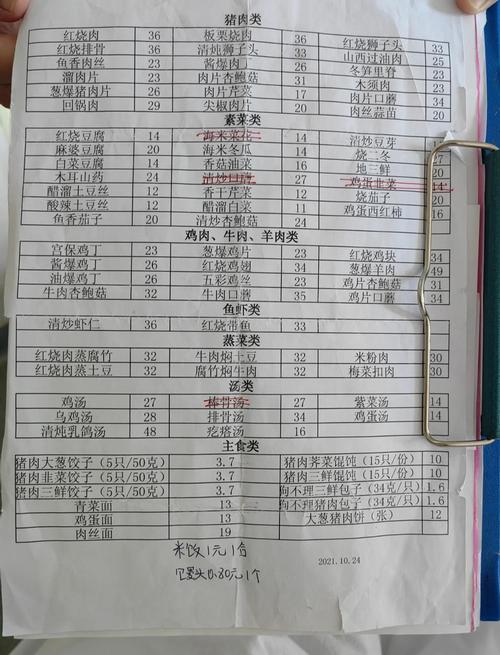 猪肉类
红烧肉 36 板栗烧肉 36 红烧狮子头 33
红烧排骨 36 清炖狮子头 33 山西过油肉 25
鱼香肉丝 23 酱爆肉丁 26 冬笋里脊 23
溜肉片 23 肉片杏鲍菇 31 木须肉 23
葱爆猪肉片 26 肉片芹菜 17 肉片口蘑 34
回锅肉 29 尖椒肉片 20 肉丝蒜苗 20
素菜类
红烧豆腐 14 海米菜花 14 清炒豆芽
麻婆豆腐 20 海米冬瓜 14 烧二冬 27
白菜豆腐 14 香菇油菜 15 地三鲜 20
木耳山药 24 清炒口蘑 27 鸡蛋韭菜 14
醋溜土豆丝 12 香干芹菜 12 烧茄子 20
酸辣土豆丝 12 醋溜白菜 11 鸡蛋西红柿 16
鱼香茄子 20 清炒杏鲍菇 24
鸡肉、牛肉、羊肉类
宫保鸡丁 23 葱爆鸡片 23 红烧鸡块 34
酱爆鸡丁 26 红烧鸡翅 34 葱爆羊肉 49
油爆鸡丁 26 五彩鸡丝 23 鸡片杏鲍菇 31
牛肉杏鲍菇 32 牛肉口蘑 35 鸡片口蘑 34
鱼虾类
清炒虾仁 36 红烧带鱼 33
蒸菜类
红烧肉蒸腐竹 32 牛肉焖土豆 32 米粉肉 30
红烧肉蒸土豆 32 腐竹焖牛肉 32 梅菜扣肉 30
汤类
鸡汤 27 棒骨汤 27 紫菜汤 14
乌鸡汤 28 排骨汤 34 鸡蛋汤 14
清炖乳鸽汤 48 疙瘩汤 16
主食类
猪肉大葱饺子（5只/50克） 3.7 猪肉荠菜馄饨（15只/份） 10
猪肉韭菜饺子（5只/50克） 3.7 猪肉三鲜馄饨（15只/份） 10
猪肉三鲜饺子（5只/50克） 3.7 狗不理三鲜包子（34克/只） 1.6
青菜面 13 狗不理猪肉包子（34克/只） 1.6
鸡蛋面 13 大葱猪肉饼（张） 12
肉丝面 19
米饭1元1合
2021.10.24
0.80元1个